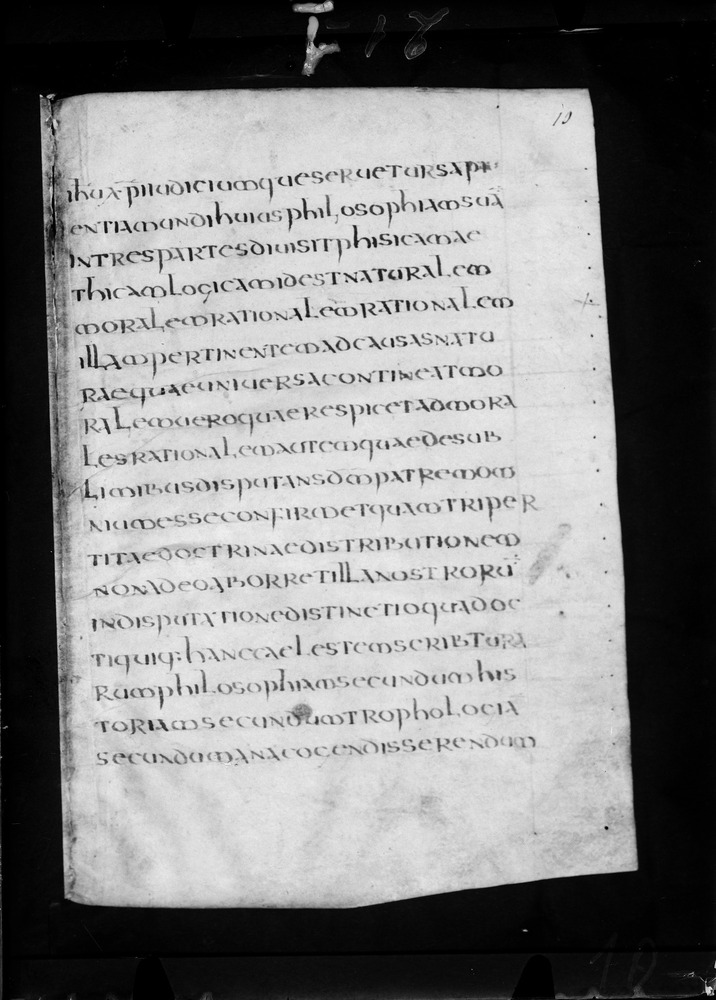 19
ihuxpiiudiciumqueseruetursapi
entiamundihuiusphilosophiamsuā
intrespartesdiuisitphisicamae
thicamlogicamidestnaturalem
moralemrationalemrationalem
illampertinentemadcausasnatu
raequaeuniuersacontineatmo
ralemueroquaerespicetadmora
lesrationalemautemquaedesub
limibusdisputansdmpatremom
niumesseconfirmetquamtriper
titaedoctrinaedistributionem
nonadeoaborretillanostrorū
indisputationedistinctioquadoc
tiquiq:hanccaelestemscribtura
rumphilosophiamsecundumhis
toriamsecundumtrophologia
secundumanagogendisserendum